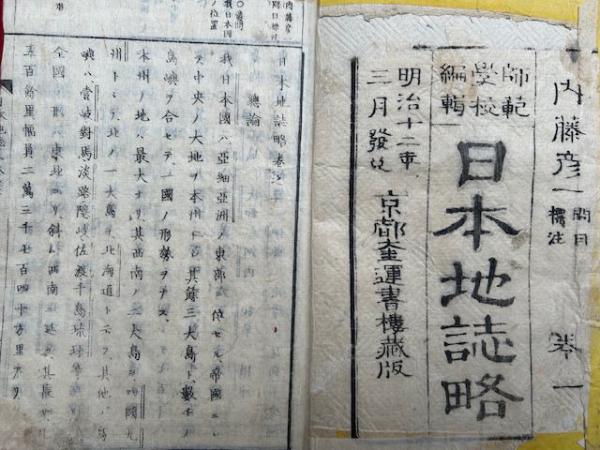 内藤彦一 問目
標注
卷一
師範
學校
編輯
日本地誌略
明治十二年
三月發兌
京都奎運書樓藏版
日本地誌略卷之一
總論
我日本國ハ亞細亞洲ノ東部ニ位セル帝國ニシ
テ中央ノ大地ヲ本州トシ其餘三大島ト數多ノ
島嶼ヲ合セテ一國ノ形勢ヲナス
本州ノ地ハ最大ナリ其西南ノ二大島ヲ四國九
州トシ其北ノ一大島ヲ北海道ト云フ其他ノ諸
嶼ハ壹岐對馬淡路隱岐佐渡千島琉球等
全國ノ形ハ東北ヨリ斜ニ西南ニ延ビ其長
五百餘里幅員二萬三千七百四十方里